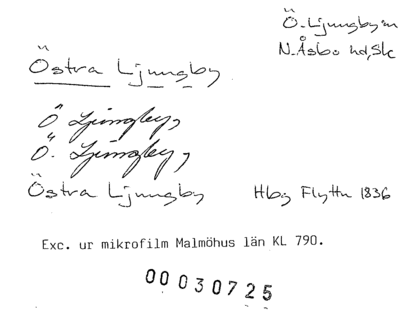 Ö. Ljungby sn
N. Åsbo hd, Sk
Östra Ljungby
Ö Ljungby,
Ö. Ljungby,
Östra Ljungby Hbg Flyttn 1836
Exc. ur mikrofilm Malmöhus län KL 790.
00030725